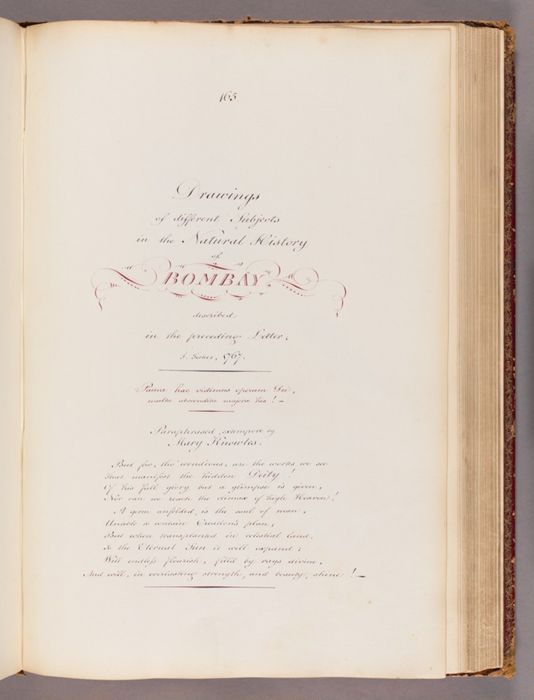 165
Drawings
of different Subjects
in the Natural History
of
BOMBAY.
described
in the preceding Letter.
J. Forbes, 1767.
Pauca hac vidimus operum Dei,
multa abscondita majora his! –
Paraphrased extempore by
Mary Knowles.
But few, tho' wond'rous, are the works we see
That manifest the hidden Deity!
Of his full glory but a glimpse is given,
Nor can we reach the climax of high Heaven!
A germ unfolded, is the soul of man,
Unable to contain Creation's plan;
But when transplanted in celestial land,
To the Eternal Sun it will expand;
Will endless flourish, fill'd by rays divine,
And will, in everlasting strength, and beauty, shine! –